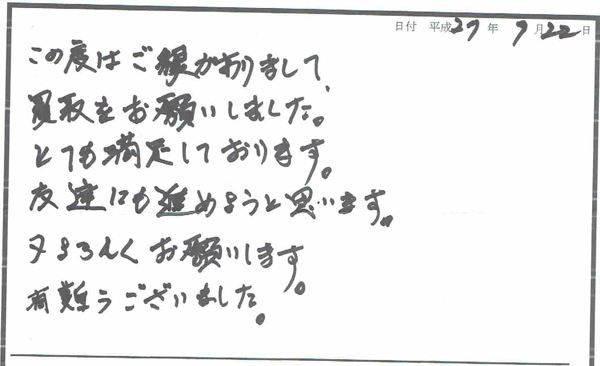 日付 平成27年9月22日
この度はご縁がありまして、
買取をお願いしました。
とても満足しております。
友達にも進めようと思います。
又よろしくお願いします。
有難うございました。